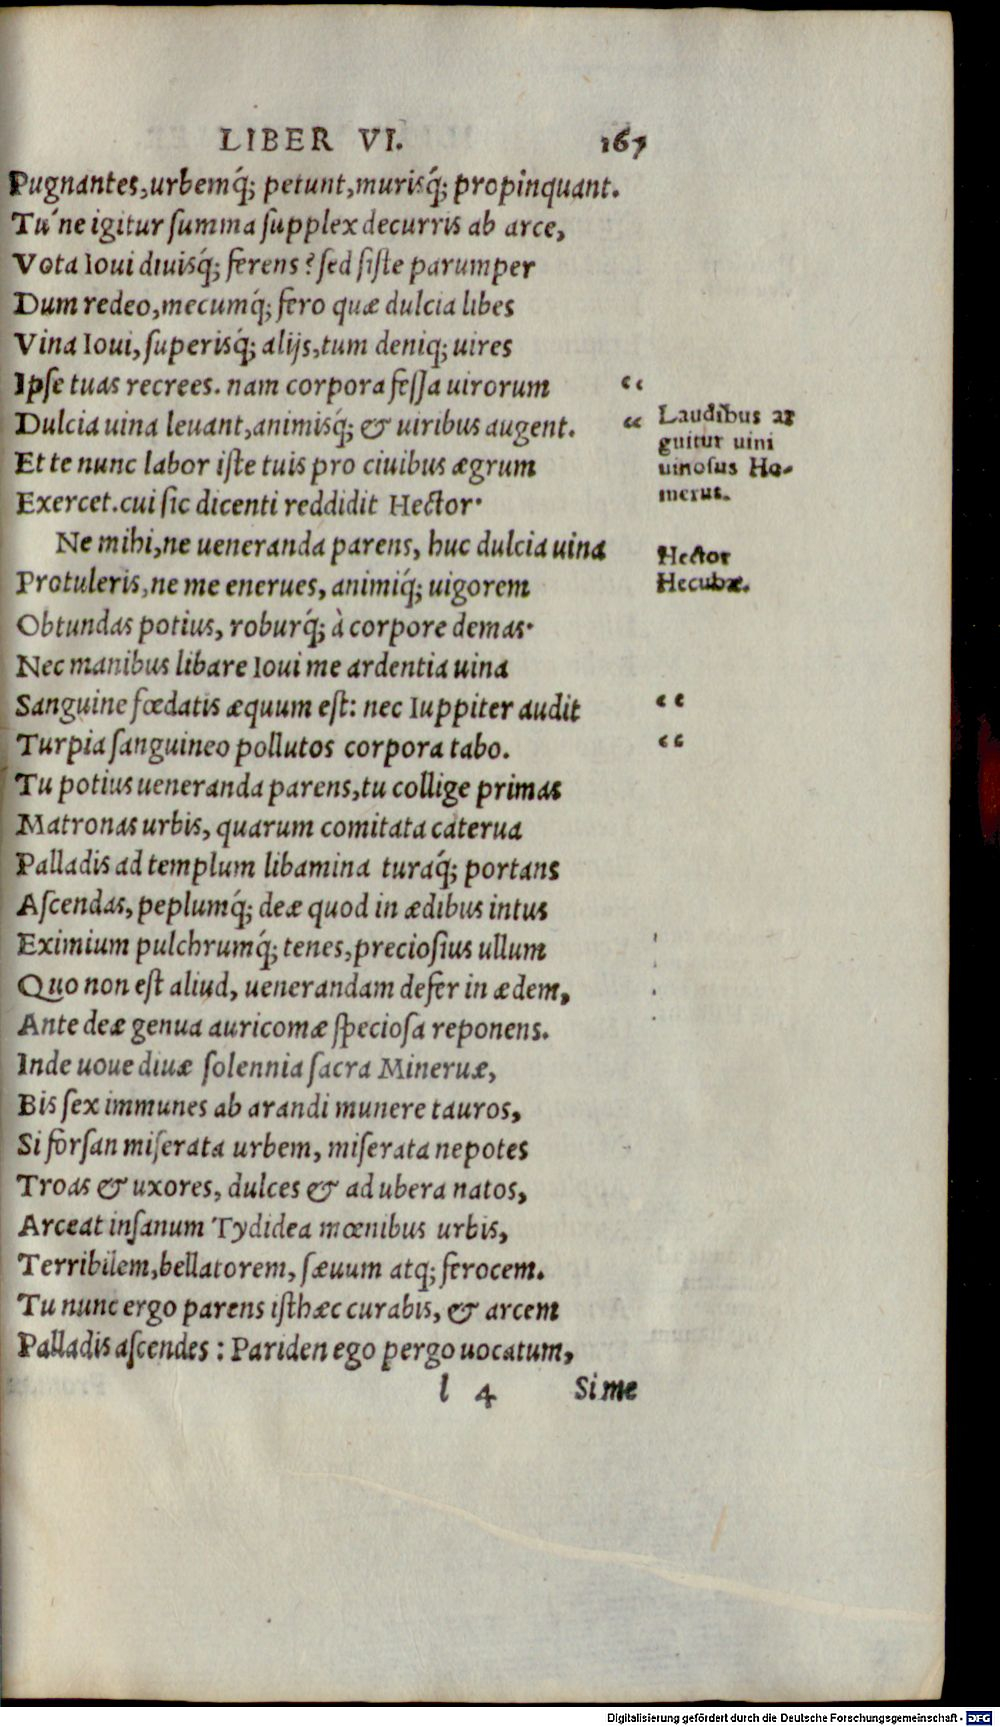 LIBER VI. 167
Pugnantes,urbemq́; petunt,murisq́; propinquant.
Tu´ne igitur ſumma ſupplex decurris ab arce,
Vota Ioui diuisq́; ferens? ſed ſiſte parumper
Dum redeo,mecumq́; fero quæ dulcia libes
Vina Ioui,ſuperisq́; alijs,tum deniq; uires
Ipſe tuas recrees. nam corpora feſſa uirorum “
Dulcia uina leuant,animisq́; & uiribus augent. “
Et te nunc labor iſte tuis pro ciuibus ægrum
Exercet.cui ſic dicenti reddidit Hector·
Laudibus ar
guitur uini
uinoſus Ho-
merus.
Ne mihi,ne ueneranda parens, huc dulcia uina
Protuleris,ne me enerues, animiq́; uigorem
Hector
Hecubæ.
Obtundas potius, roburq́; à corpore demas·
Nec manibus libare Ioui me ardentia uina
Sanguine fœdatis æquum eſt: nec Iuppiter audit “
Turpia ſanguineo pollutos corpora tabo. “
Tu potius ueneranda parens,tu collige primas
Matronas urbis, quarum comitata caterua
Palladis ad templum libamina turaq́; portans
Aſcendas, peplumq́; deæ quod in ædibus intus
Eximium pulchrumq́; tenes,precioſius ullum
Quo non eſt aliud, uenerandam defer in ædem,
Ante deæ genua auricomæ ſpecioſa reponens.
Inde uoue diuæ ſolennia ſacra Mineruæ,
Bis ſex immunes ab arandi munere tauros,
Si forſan miſerata urbem, miſerata nepotes
Troas & uxores, dulces & ad ubera natos,
Arceat inſanum Tydidea mœnibus urbis,
Terribilem,bellatorem, ſæuum atq; ferocem.
Tu nunc ergo parens iſthæc curabis, & arcem
Palladis aſcendes : Pariden ego pergo uocatum,
l 4 Si me
Digitalisierung gefördert durch die Deutsche Forschungsgemeinschaft - DFG